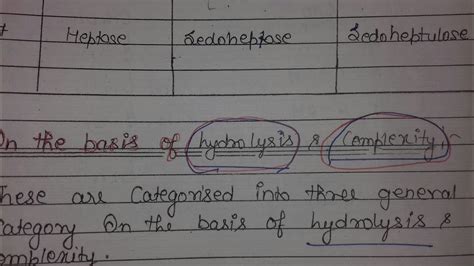 Heptose Sedoheptose Sedoheptulose
On the basis of hydrolysis & Complexity,
These are Categorised into three general
Category On the basis of hydrolysis &
Complexity.